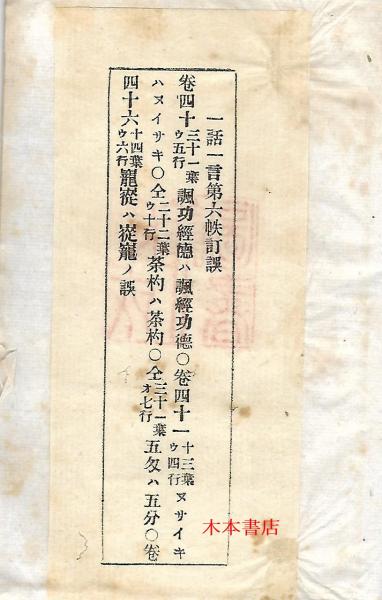 一話一言第六帙訂誤
卷四十三十一葉ウ五行諷功經德ハ諷經功德〇卷四十一十三葉ウ四行ヌサイキ
ハヌイサキ〇仝二十二葉ウ十行茶杓ハ茶杓〇仝三十一葉オ七行五匁ハ五分〇卷
四十六十四葉ウ六行龍嵸ハ嵸龍ノ誤
木本書店